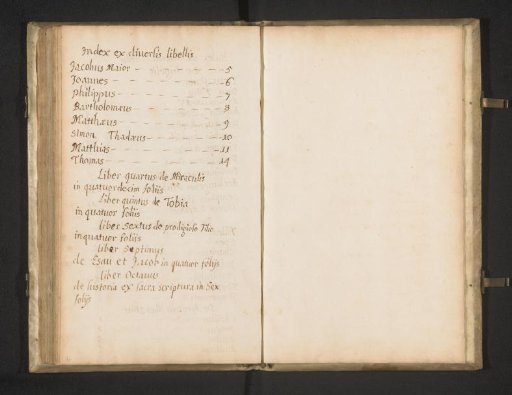 Index ex diversis libellis
Jacobus Maior — 5
Joannes — 6
Philippus — 7
Bartholomæus — 8
Matthæus — 9
Simon Thadæus — 10
Matthias — 11
Thomas — 14
Liber quartus de Miraculis
in quatuordecim foliis
Liber quintus de Tobia
in quatuor foliis
Liber sextus de prodigioso
in quatuor foliis
liber septimus
de Esau et Jacob in quatuor folijs
liber Octavus
de historia ex sacra scriptura in sex
folijs